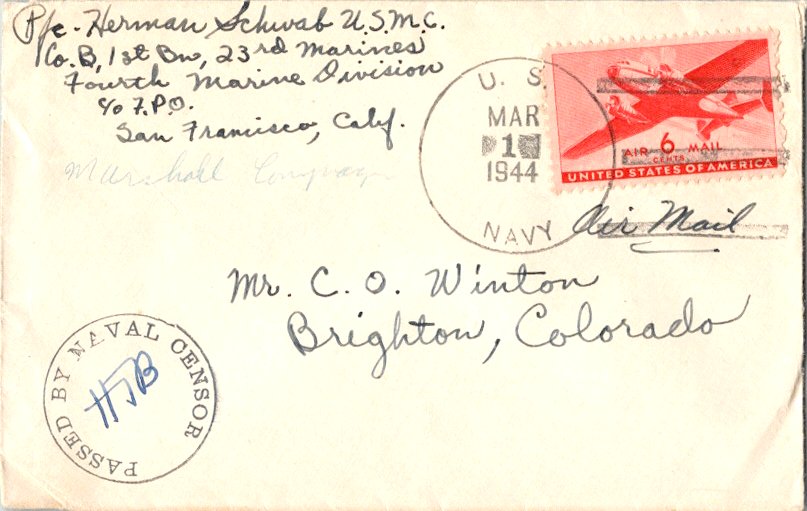 Pfc. Herman Schwab U.S.M.C.
Co. B, 1st Bn, 23rd Marines
Fourth Marine Division
c/o F.P.O.
San Francisco, Calif.
Marshall
U. S.
MAR
1
1944
NAVY
AIR 6 MAIL
CENTS
UNITED STATES OF AMERICA
Air Mail
Mr. C. O. Winton
Brighton, Colorado
PASSED BY NAVAL CENSOR
HJB